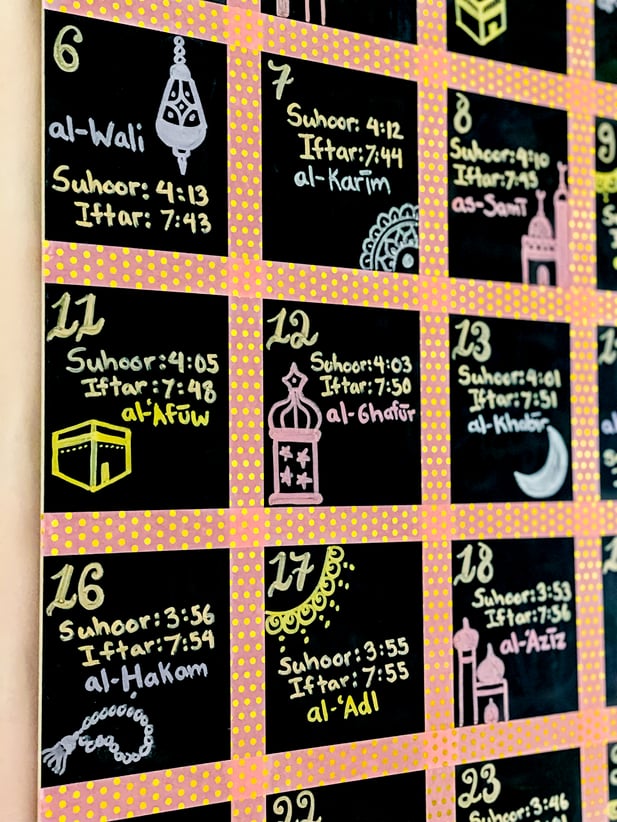 6
al-Wali
Suhoor: 4:13
Iftar: 7:43
7
Suhoor: 4:12
Iftar: 7:44
al-Karīm
8
Suhoor: 4:10
Iftar: 7:45
as-Samī
9
11
Suhoor: 4:05
Iftar: 7:48
al-'Afūw
12
Suhoor: 4:03
Iftar: 7:50
al-Ghafūr
13
Suhoor: 4:01
Iftar: 7:51
al-Khabīr
16
Suhoor: 3:56
Iftar: 7:54
al-Ḥakam
17
Suhoor: 3:55
Iftar: 7:55
al-'Adl
18
Suhoor: 3:53
Iftar: 7:56
al-'Azīz
22
23
Suhoor: 3:46